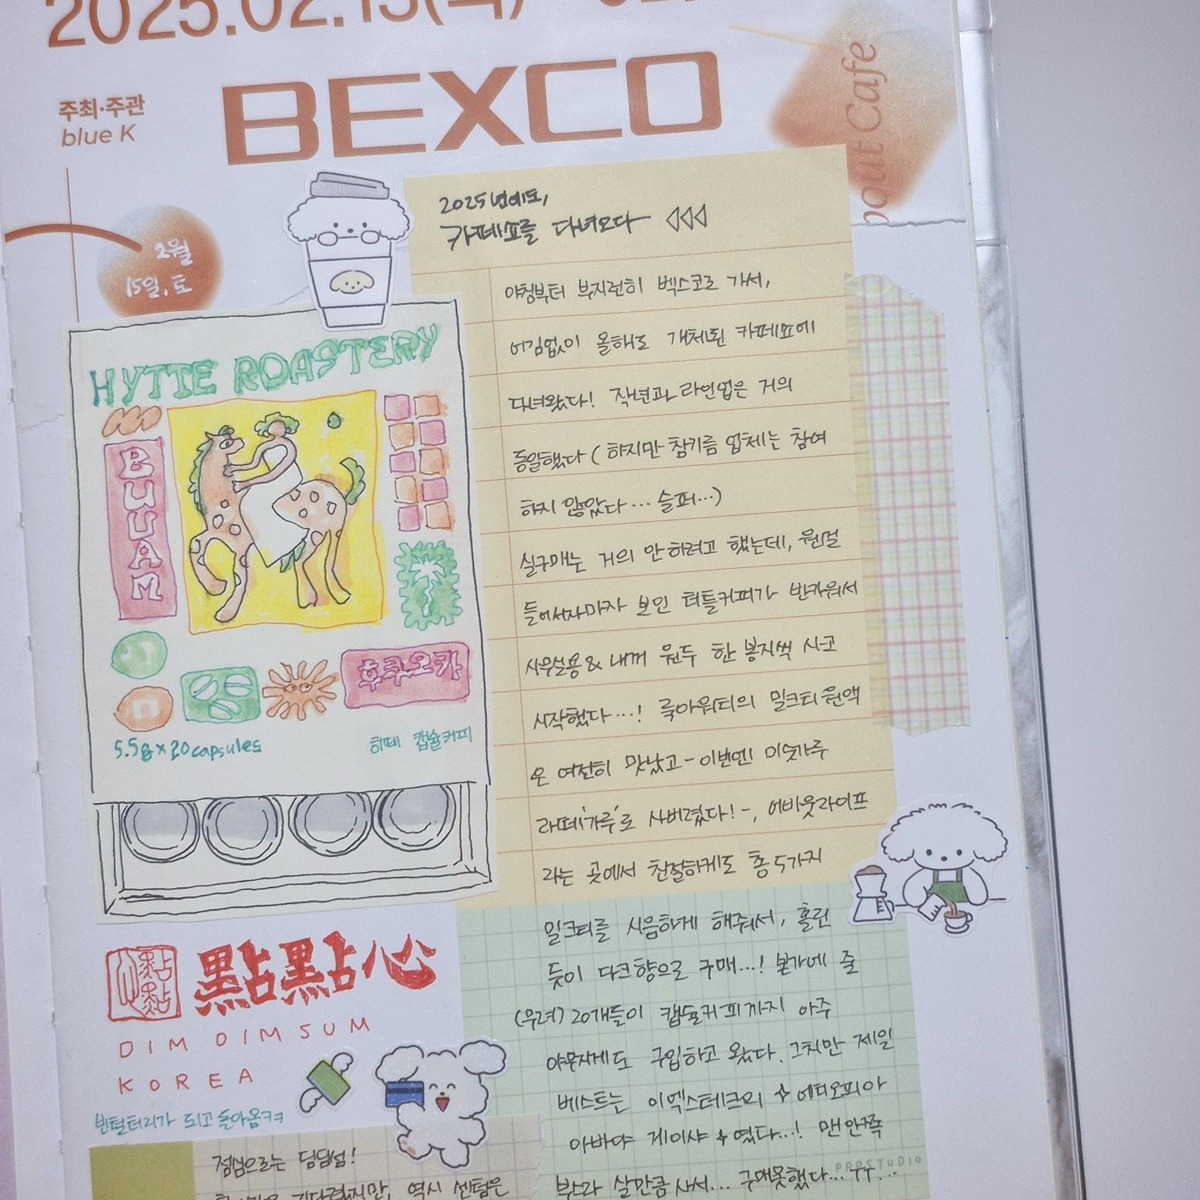 2025.02.13(목)
BEXCO
주최·주관
blue K
bout Cafe
2월
15일, 토
2025년에도,
카페쇼를 다녀오다
아침부터 부지런히 벡스코로 가서,
어김없이 올해도 개최된 카페쇼에
다녀왔다! 작년과 라인업은 거의
동일했다 (하지만 참기름 업체는 참여
하지 않았다... 슬퍼...)
실구매는 거의 안하려고 했는데, 웬걸
들어서자마자 보인 터틀커피가 반가워서
사무실용 & 내꺼 원두 한 봉지씩 사고
시작했다...! 룩아워티의 밀크티 원액
은 여전히 맛났고 - 이번엔! 미숫가루
라떼'가루'로 사버렸다! -, 어바웃라이프
라는 곳에서 친절하게도 총 5가지
밀크티를 시음하게 해줘서, 홀린
듯이 다크향으로 구매...! 본가에 줄
(무려) 20개들이 캡슐커피까지 아주
야무지게도 구입하고 왔다. 그치만 제일
베스트는 이멕스테크의 에티오피아
아바야 게이샤 였다...! 맨 안쪽
부스라 살만큼 사서... 구매못했다... ㅠㅠ..
PPPSTUDIO
HYTTE ROASTERY
BUUAM
후쿠오카
5.5g × 20 capsules
히떼 캡슐커피
點點心
DIM DIM SUM
KOREA
빈털터리가 되고 돌아옴ㅋㅋ
점심으로는 딤딤섬!
기다렸지만, 역시 센텀은